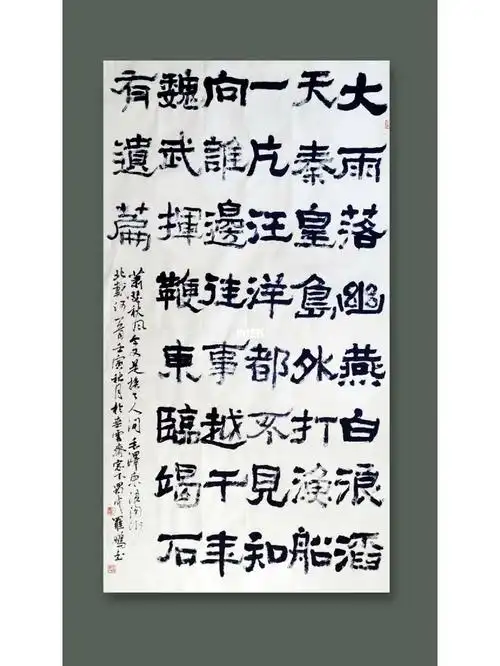 大雨落幽燕白浪滔
天秦皇島外打漁船
一片汪洋都不見知
向誰邊往事越千年
魏武揮鞭東臨竭石
有遺篇
蕭瑟秋風今又是換了人間毛澤東浪淘沙
北戴河一首壬寅秋月於雲齋窓下